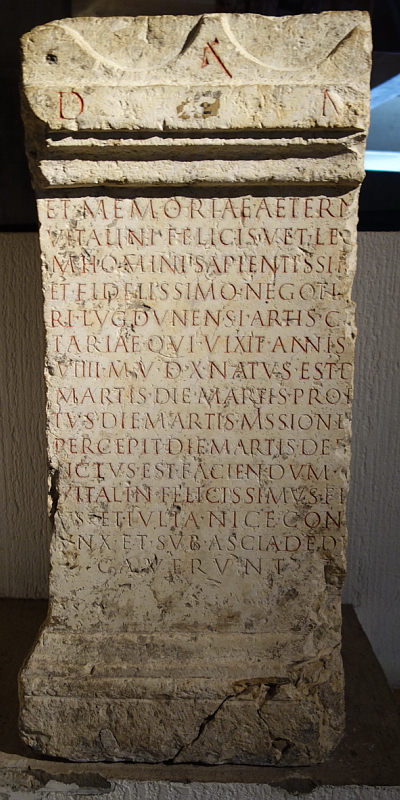 A
D M
ET MEMORIAE AETERN
VITALINI FELICIS VET LE
M HOMINI SAPIENTISSI
ET FIDELISSIMO NEGOTI
RI LVGDVNENSI ARTIS C
TARIAE QVI VIXIT ANNIS
VIIII M V D X NATVS EST D
MARTIS DIE MARTIS PROF
TVS DIE MARTIS MISSIONE
PERCEPIT DIE MARTIS DE
NCTVS EST FACIENDVM
VITALIN FELICISSIMVS FI
VS ET IVLIA NICE CON
VNX ET SVB ASCIA DED
CAVERVNT